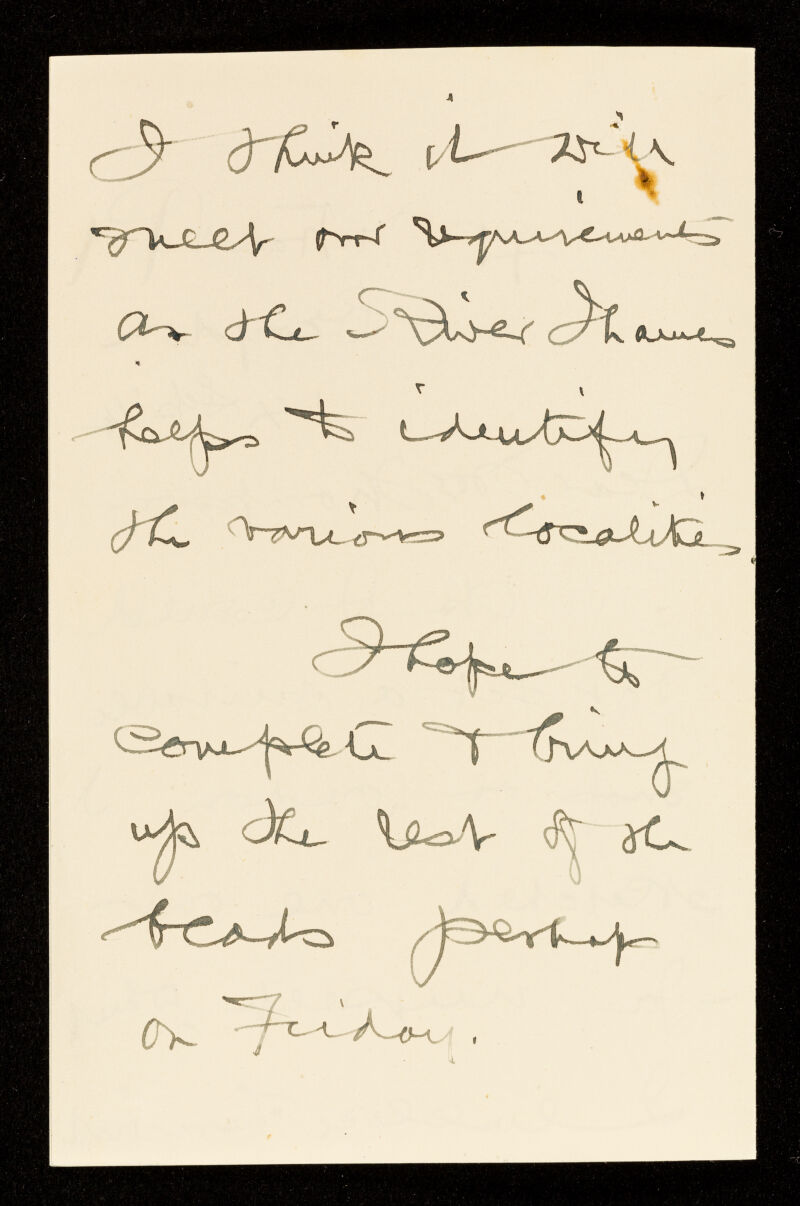 I think it will
meet our requirements
as the River Thames
helps to identify
the various localities.
I hope to
complete & bring
up the rest of the
beads perhaps
on Friday.